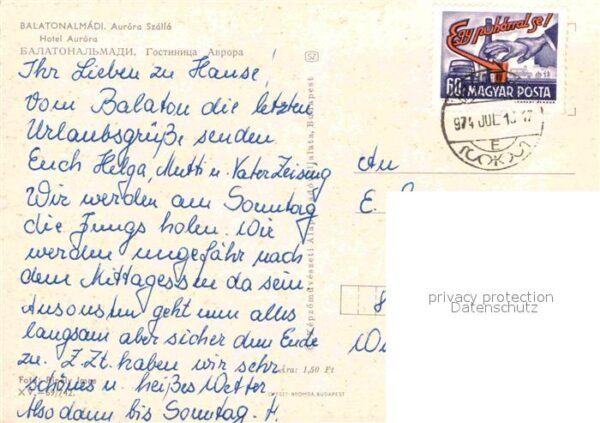 BALATONALMÁDI. Auróra Szálló
Hotel Auróra
БАЛАТОНАЛЬМАДИ. Гостиница Аврора
Ihr Lieben zu Hause!
Vom Balaton die letzten
Urlaubsgrüße senden
Euch Helga, Mutti u. Vater Zeising
Wir werden am Sonntag
die Jungs holen. Wir
werden ungefähr nach
dem Mittagessen da sein.
Ansonsten geht nun alles
langsam aber sicher dem Ende
zu. Z. Zt. haben wir sehr
schönes u. heißes Wetter.
Also dann bis Sonntag. H.
Ára: 1,50 Ft
BUDAPEST
Képzőművészeti Alap Kiadóvállalata, Budapest
Egy pohárral se!
60f MAGYAR POSTA
974 JUL
An
E.
privacy protection
Datenschutz